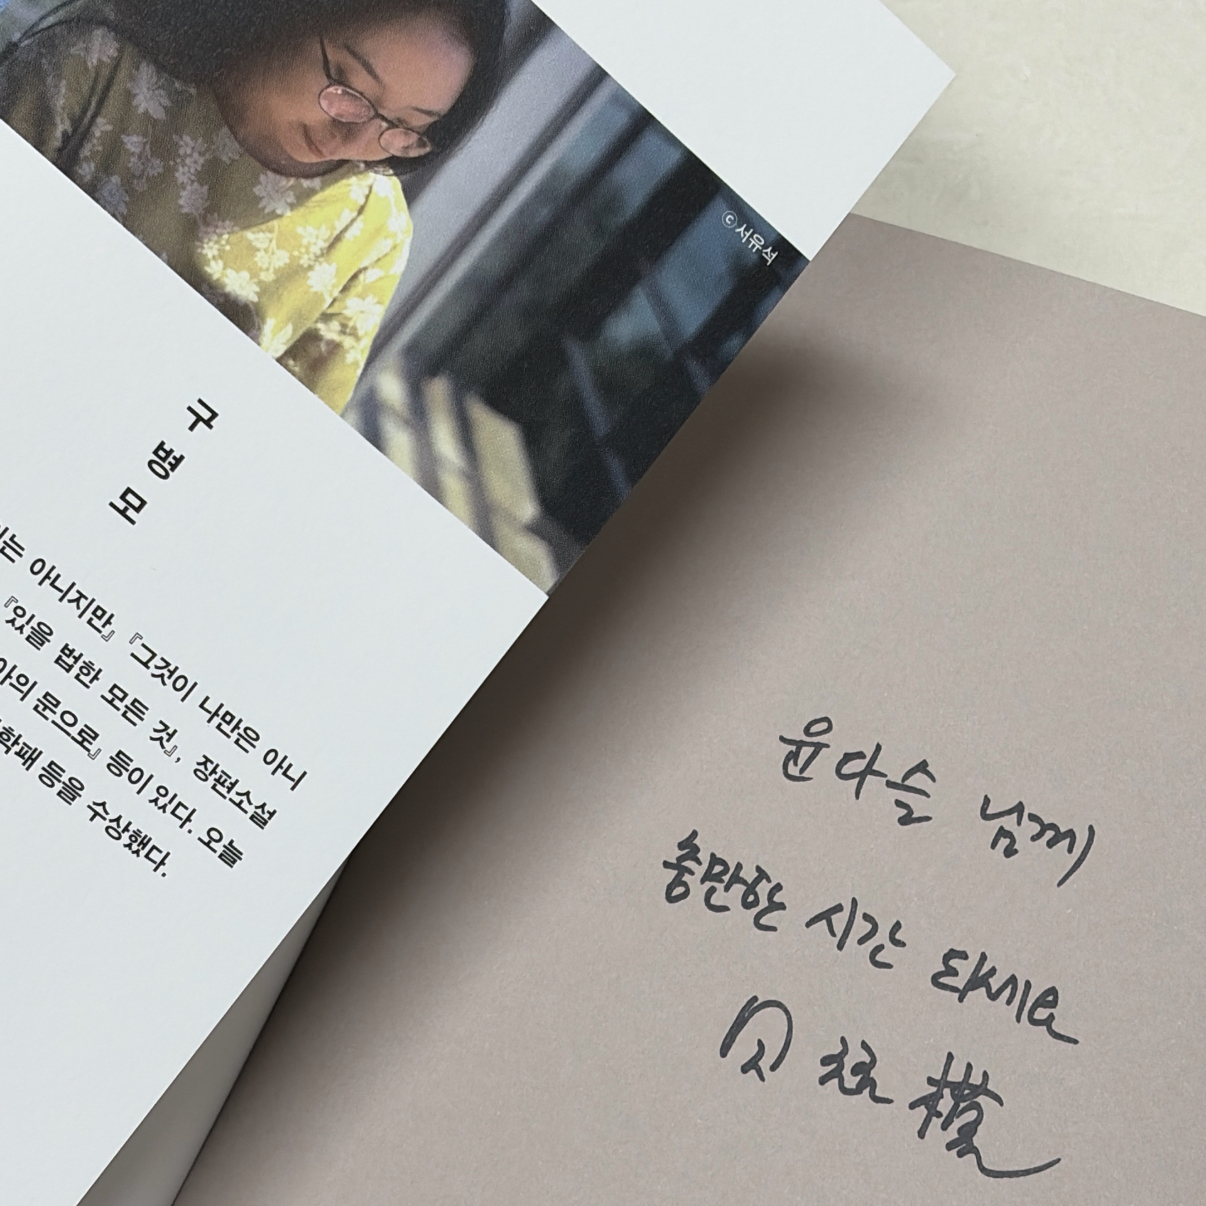 ⓒ서유석
구병모
는 아니지만』 『그것이 나만은 아니
『있을 법한 모든 것』, 장편소설
아의 문으로』 등이 있다. 오늘
학패 등을 수상했다.
윤다슬 님께
충만한 시간 되세요